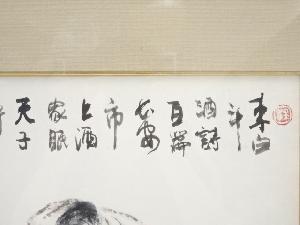 李白
斗
酒詩
百篇
長安
市
上酒
家眠
天子